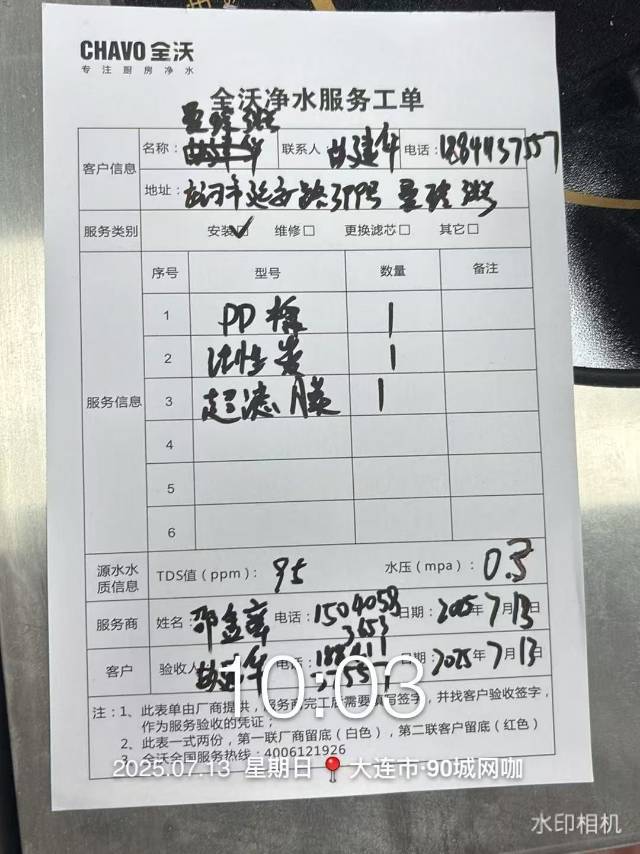 CHAVO 全沃
专注厨房净水
全沃净水服务工单
客户信息
名称：
联系人 胡建华
电话：18844437557
地址：
延安路399号
服务类别
安装☑ 维修□ 更换滤芯□ 其它□
服务信息
序号 型号 数量 备注
1 PP棉 1
2 活性炭 1
3 超滤膜 1
4
5
6
源水水质信息
TDS值（ppm）：95 水压（mpa）：0.3
服务商 姓名 电话：15040583653 日期：2025年7月13日
客户 验收人 胡建华 电话： 日期：2025年7月13日
注：1、此表单由厂商提供，服务商完工后需要填写签字，并找客户验收签字，
作为服务验收的凭证；
2、此表一式两份，第一联厂商留底（白色），第二联客户留底（红色）
全沃全国服务热线：4006121926
10:03
2025.07.13 星期日 大连市·90城网咖
水印相机